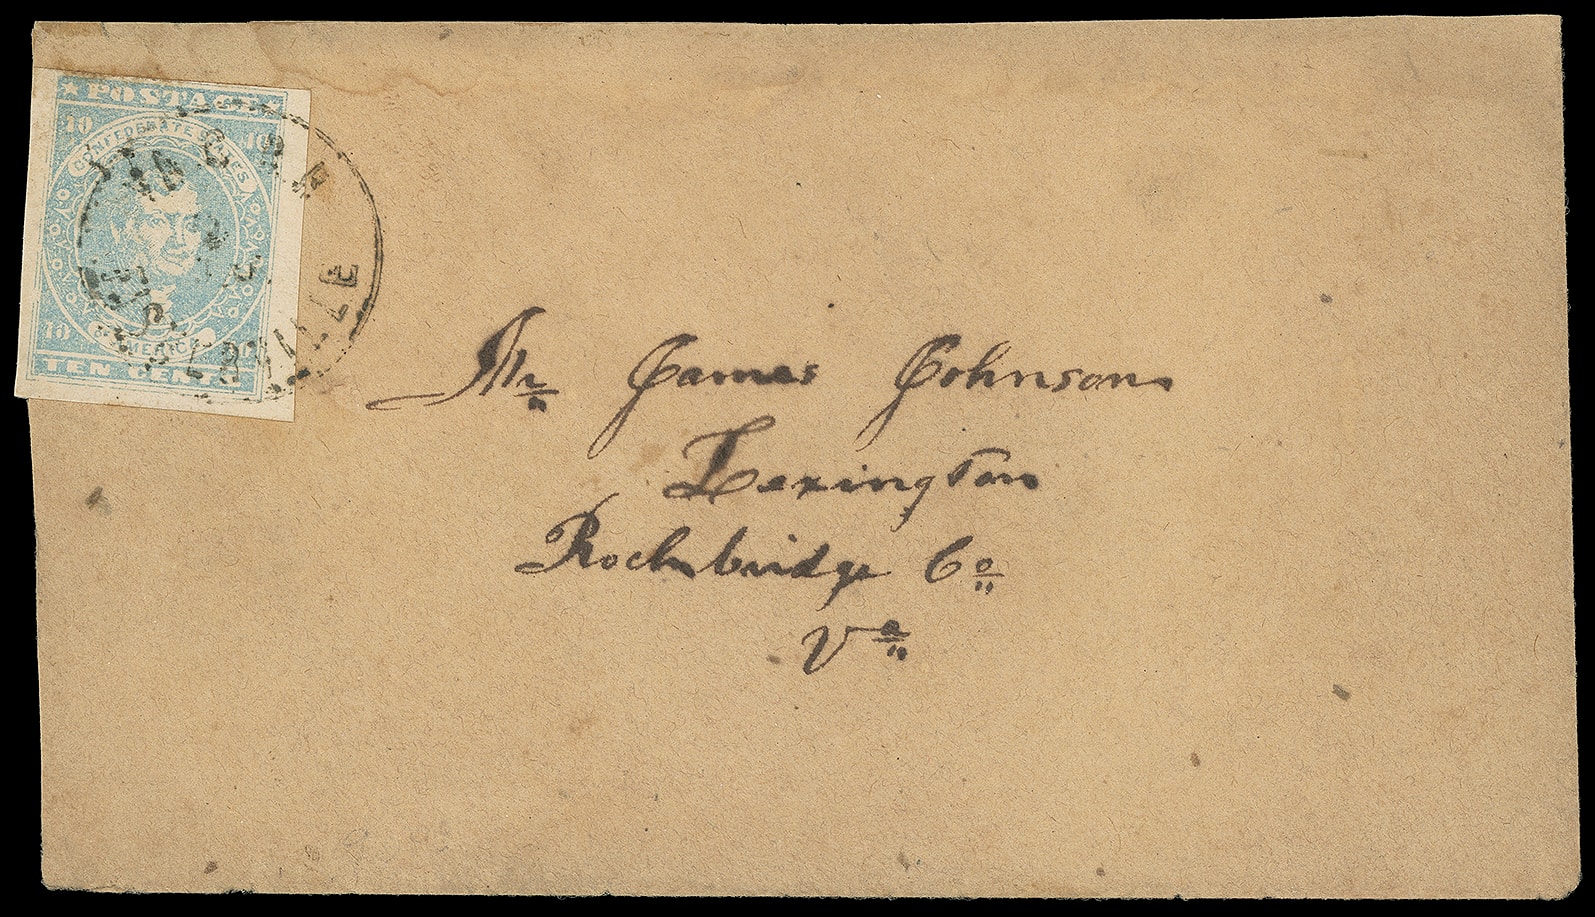 ★ POSTAGE ★
10 10
CONFEDERATE STATES
AMERICA
10
TEN CENTS
Mr James Johnson
Lexington
Rockbridge Co
Va